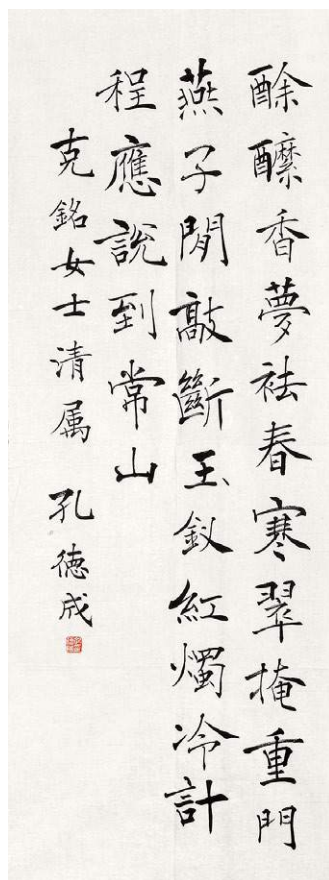 酴醾香夢祛春寒翠掩重門
燕子閒敲斷玉釵紅燭冷計
程應說到常山
克銘女士清属 孔德成